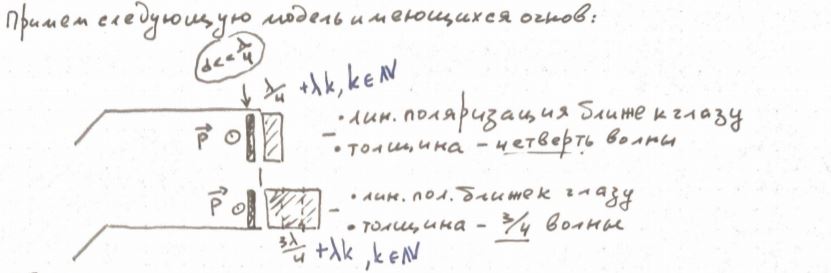 Примем следующую модель имеющихся очков:
d << λ/4
λ/4 + λk, k ∈ N
P⃗ ⊙ – • лин. поляризация ближе к глазу
• толщина – четверть волны
P⃗ ⊙ – • лин. пол. ближе к глазу
• толщина – 3/4 волны
3λ/4 + λk, k ∈ N